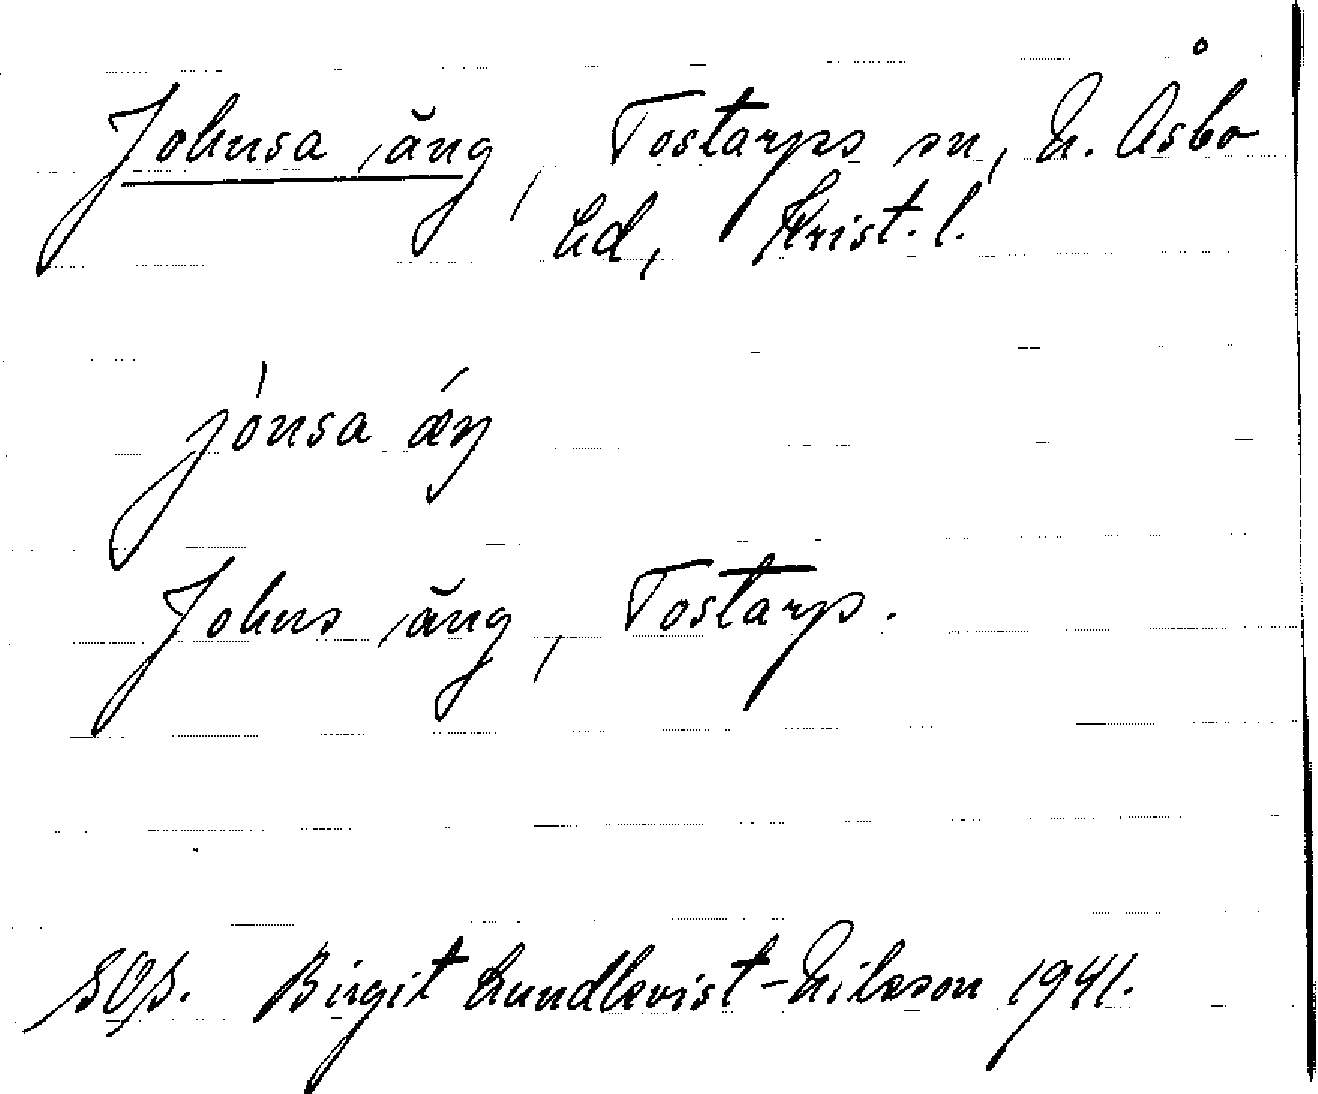 Johnsa äng, Tostarps sn, N. Åsbo
hd, Krist. l.
jónsa áŋ
Johns äng, Tostarp.
SOS. Birgit Lundkvist-Nilsson 1941.